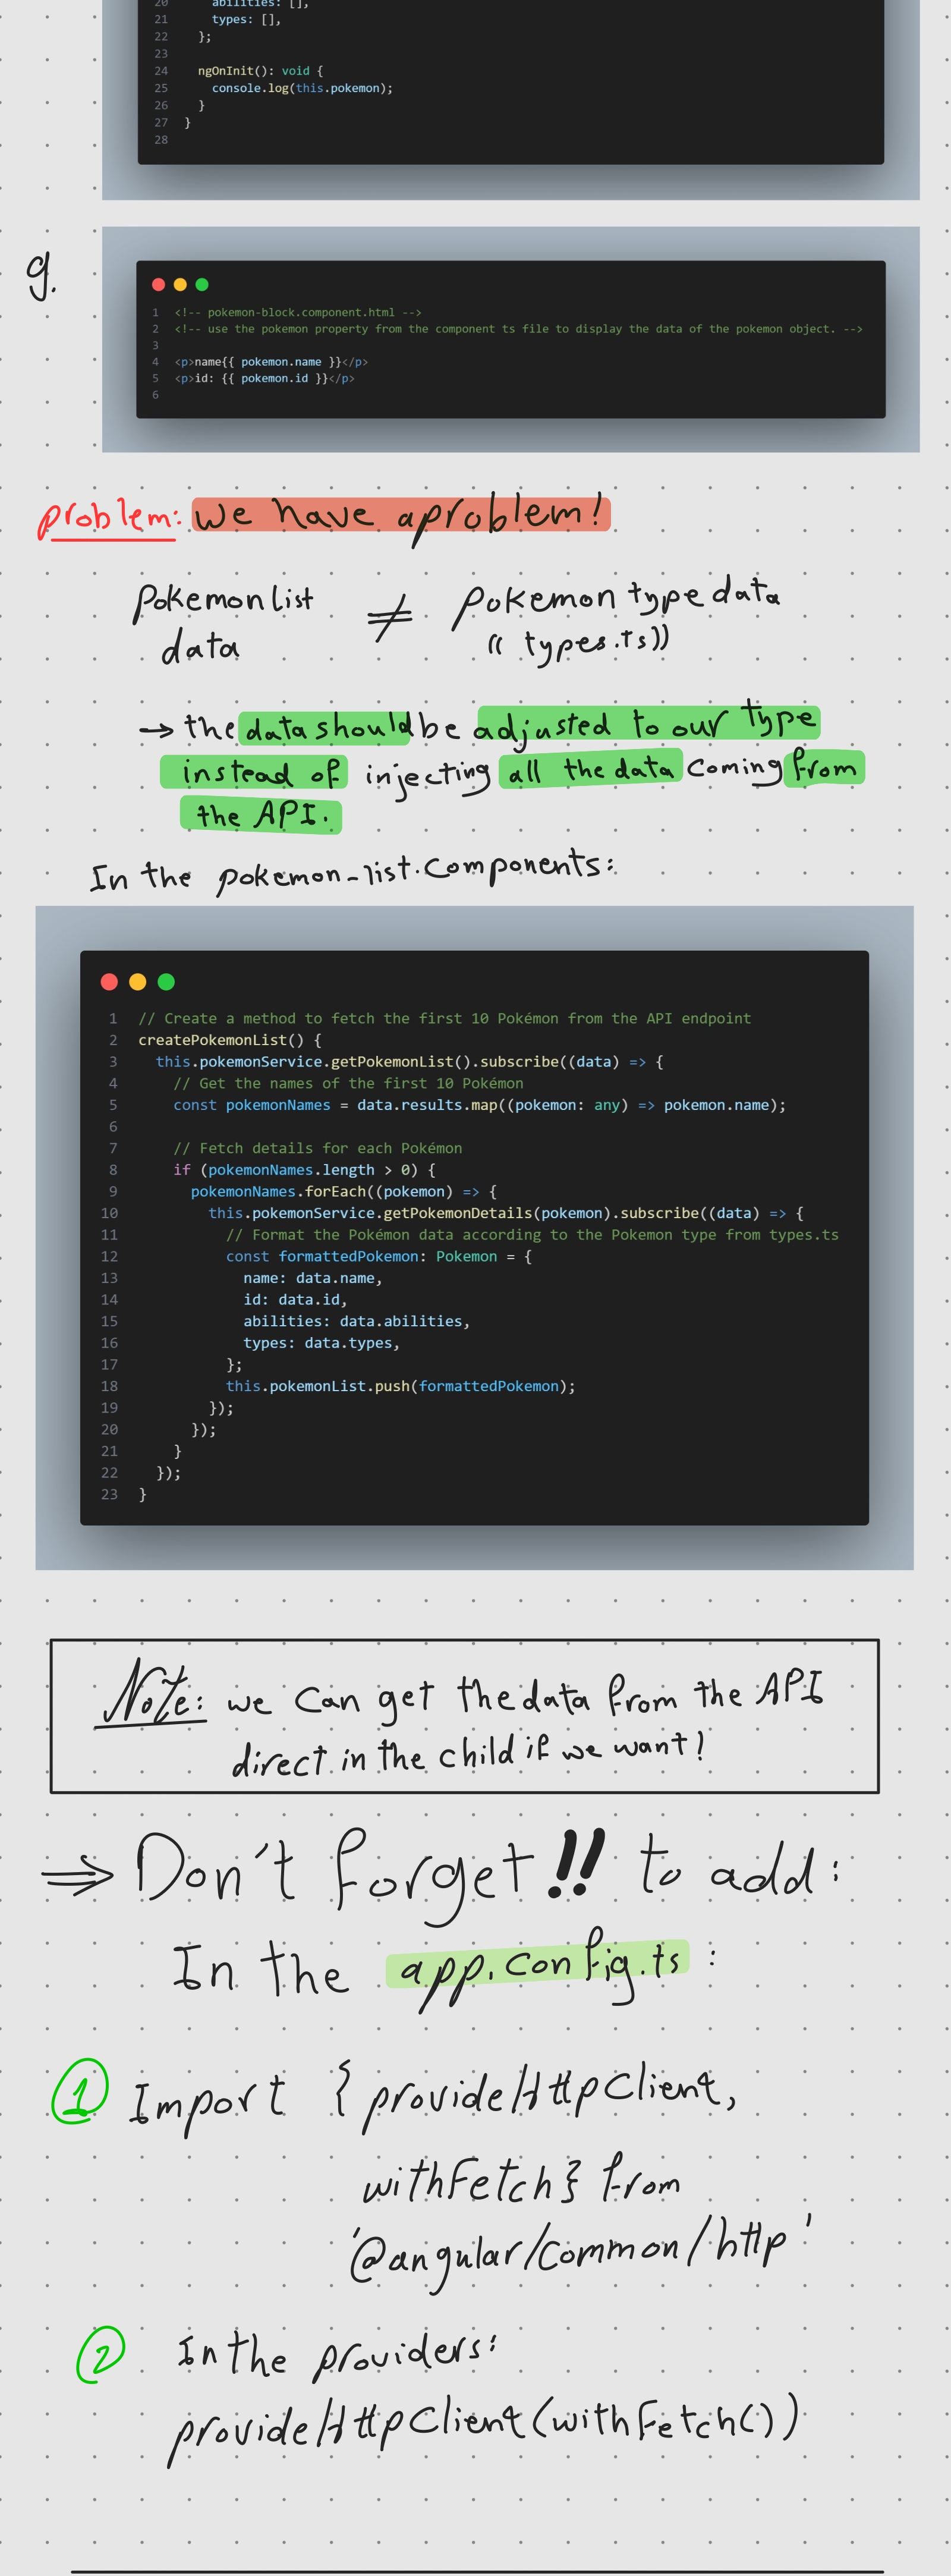 20     abilities: [],
21     types: [],
22   };
23
24   ngOnInit(): void {
25     console.log(this.pokemon);
26   }
27 }
28
g.
1 <!-- pokemon-block.component.html -->
2 <!-- use the pokemon property from the component ts file to display the data of the pokemon object. -->
3
4 <p>name{{ pokemon.name }}</p>
5 <p>id: {{ pokemon.id }}</p>
6
problem: we have a problem!
Pokemon list ≠ pokemon type data
data (( types.ts ))
→ the data should be adjusted to our type
instead of injecting all the data coming from
the API.
In the pokemon-list.components:
1 // Create a method to fetch the first 10 Pokémon from the API endpoint
2 createPokemonList() {
3   this.pokemonService.getPokemonList().subscribe((data) => {
4     // Get the names of the first 10 Pokémon
5     const pokemonNames = data.results.map((pokemon: any) => pokemon.name);
6
7     // Fetch details for each Pokémon
8     if (pokemonNames.length > 0) {
9       pokemonNames.forEach((pokemon) => {
10         this.pokemonService.getPokemonDetails(pokemon).subscribe((data) => {
11           // Format the Pokémon data according to the Pokemon type from types.ts
12           const formattedPokemon: Pokemon = {
13             name: data.name,
14             id: data.id,
15             abilities: data.abilities,
16             types: data.types,
17           };
18           this.pokemonList.push(formattedPokemon);
19         });
20       });
21     }
22   });
23 }
Note: we can get the data from the API
direct in the child if we want!
⇒ Don't forget!! to add:
In the app.config.ts :
1 Import { provideHttpClient,
withFetch } from
'@angular/common/http'
2 In the providers:
provideHttpClient(withFetch())